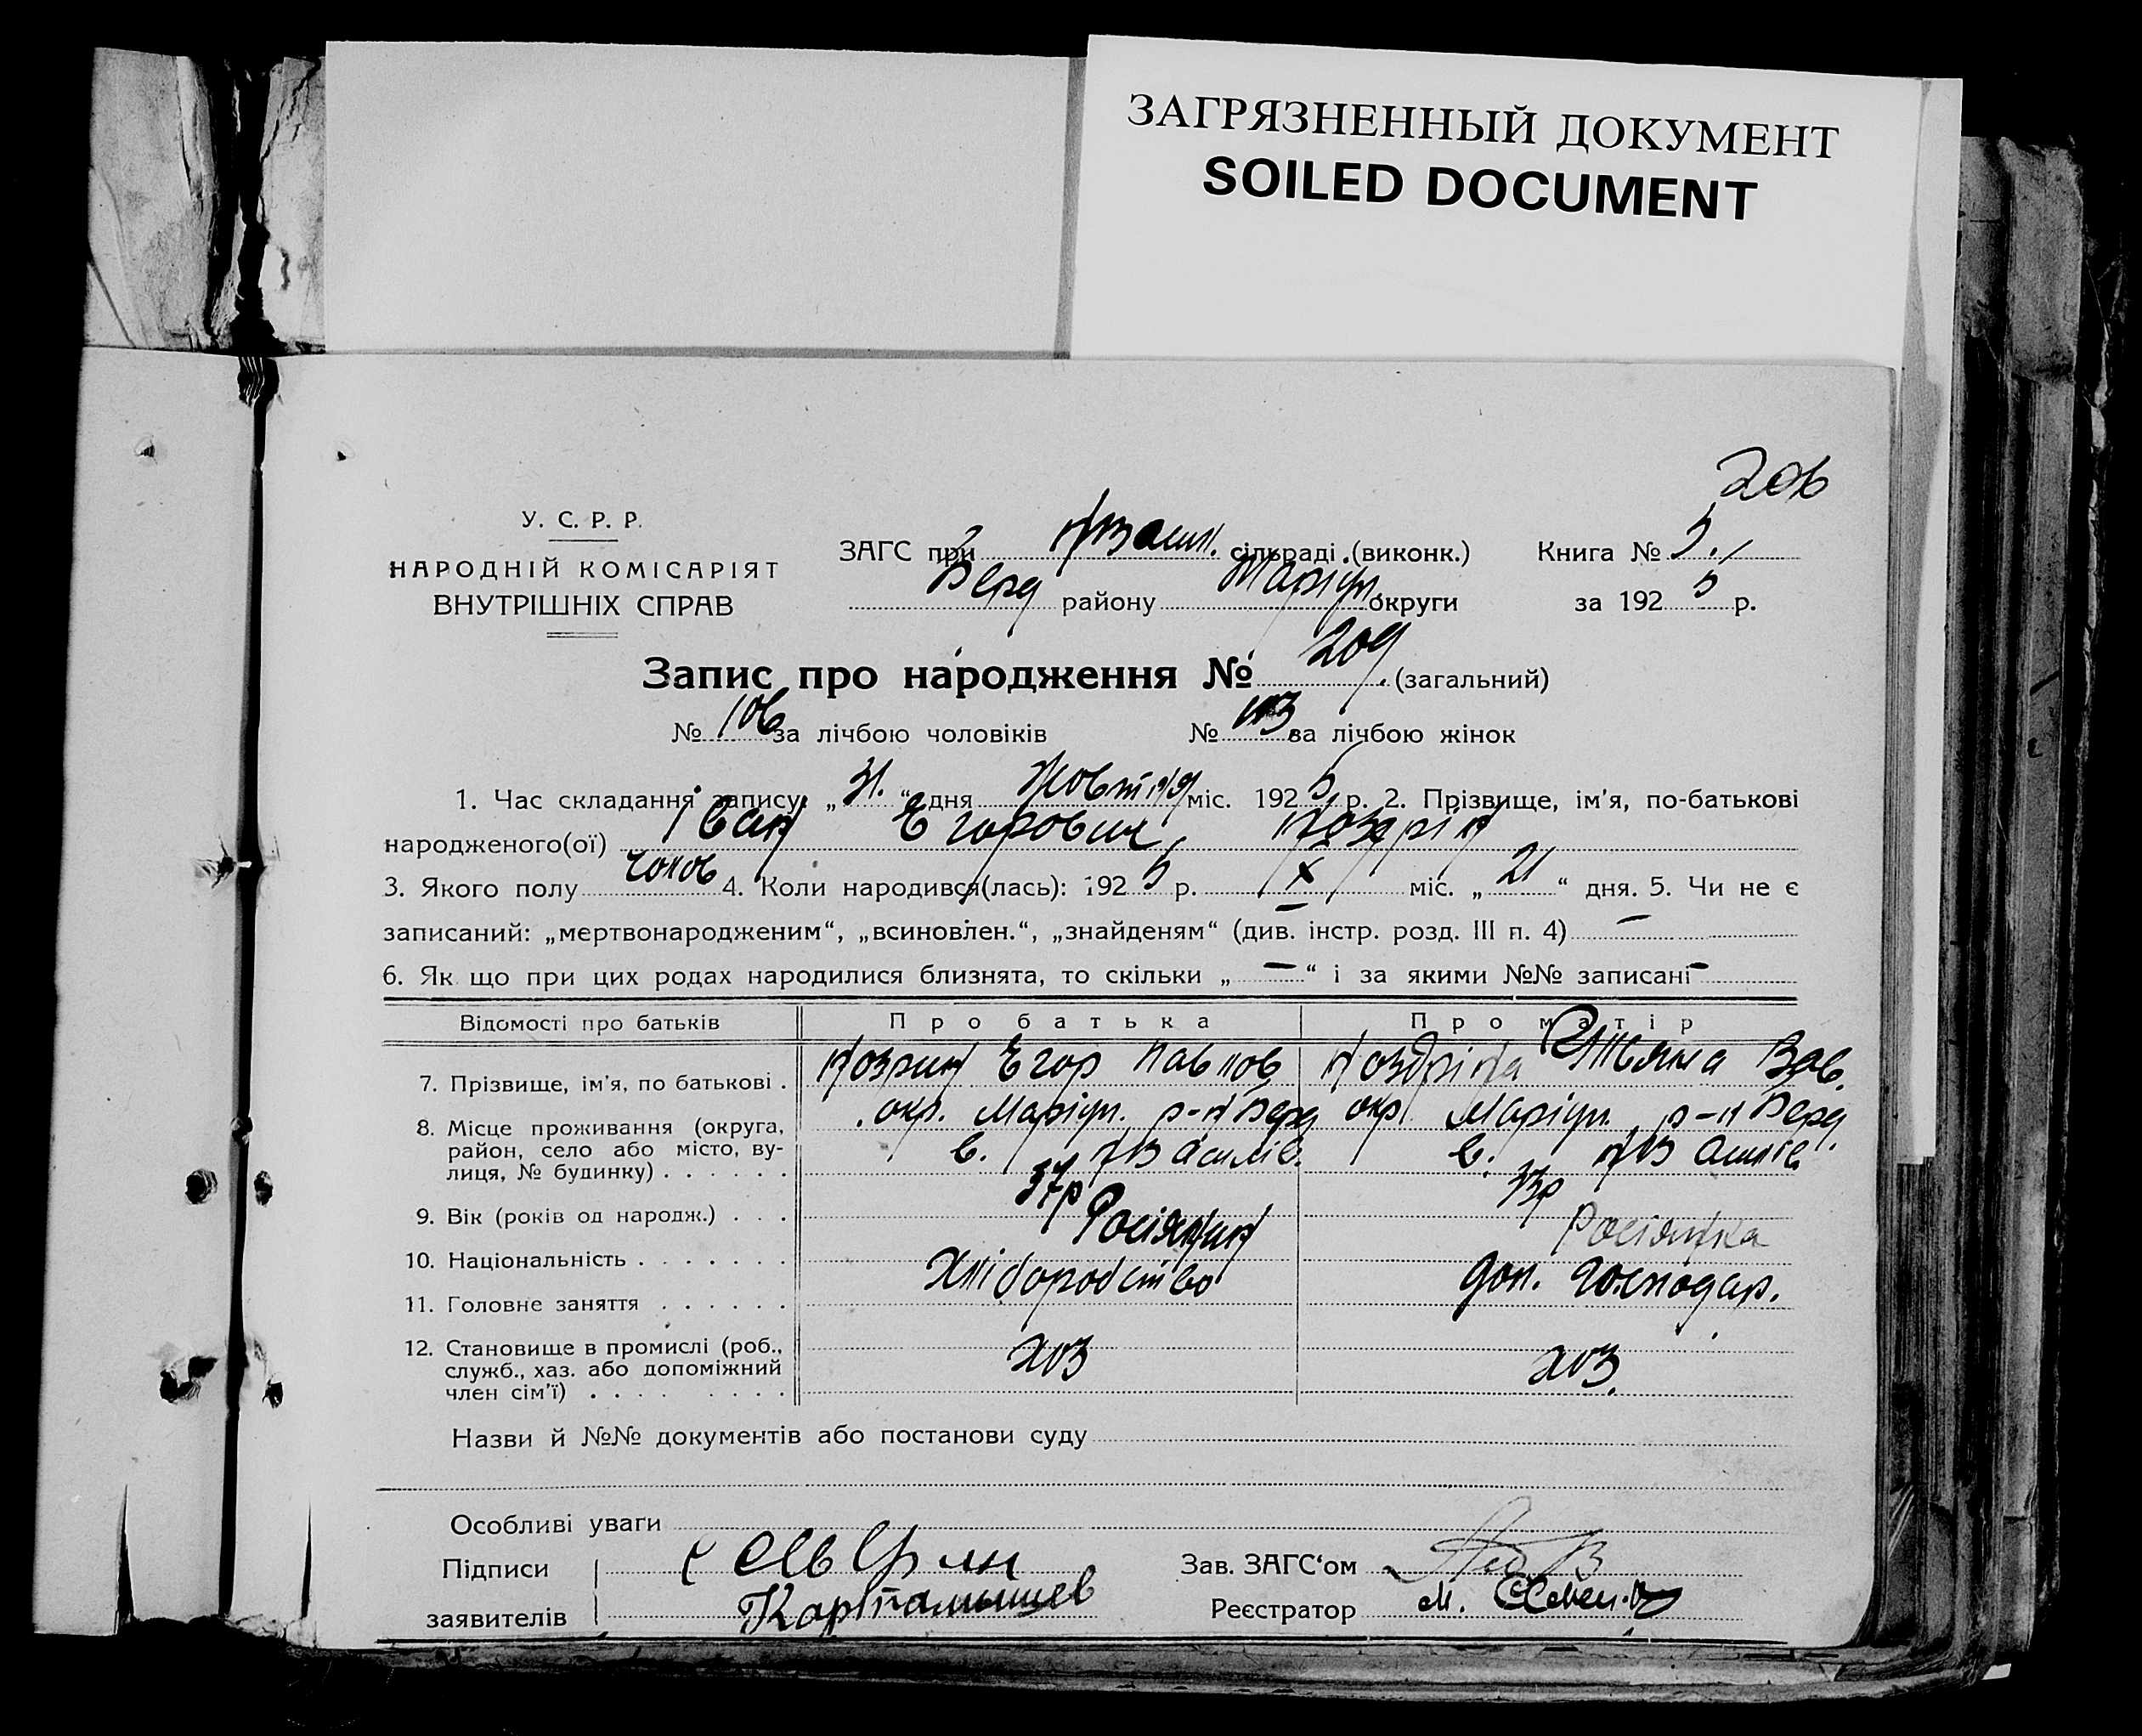 ЗАГРЯЗНЕННЫЙ ДОКУМЕНТ
SOILED DOCUMENT
206
У. С. Р. Р.
НАРОДНІЙ КОМІСАРІЯТ
ВНУТРІШНІХ СПРАВ
ЗАГС при сільраді (виконк.) Книга № 5.
Берд району Маріуп. округи за 192 5 р.
Запис про народження № 209 (загальний)
№ 106 за лічбою чоловіків № 103 за лічбою жінок
1. Час складання запису: „ 31. “ дня Жовтня міс. 192 5 р. 2. Прізвище, ім'я, по-батькові
народженого(ої) Іван Егорович
3. Якого полу чолов 4. Коли народився(лась): 192 5 р. X міс. „ 21 “ дня. 5. Чи не є
записаний: „мертвонародженим“, „всиновлен.“, „знайденям“ (див. інстр. розд. III п. 4) —
6. Як що при цих родах народилися близнята, то скільки „ — “ і за якими №№ записані —
Відомості про батьків Про батька Про матір
7. Прізвище, ім'я, по батькові . Нозрин Егор Павлов Ноздріна Вас.
8. Місце проживання (округа, район, село або місто, вулиця, № будинку) . . . . . . окр. Маріуп. р-н Берд окр Маріуп. р-н Берд
с. Н Василів. с. Н Василів.
9. Вік (років од народж.) . . . 37р 33р
10. Національність . . . . . . . Росіянин Росіянка
11. Головне заняття . . . . . . Хліборобство дом. господар.
12. Становище в промислі (роб., служб., хаз. або допоміжний член сім'ї) . . . . . . . . хоз хоз.
Назви й №№ документів або постанови суду
Особливі уваги
Підписи
заявителів Карталышев
Зав. ЗАГС'ом
Реєстратор М.